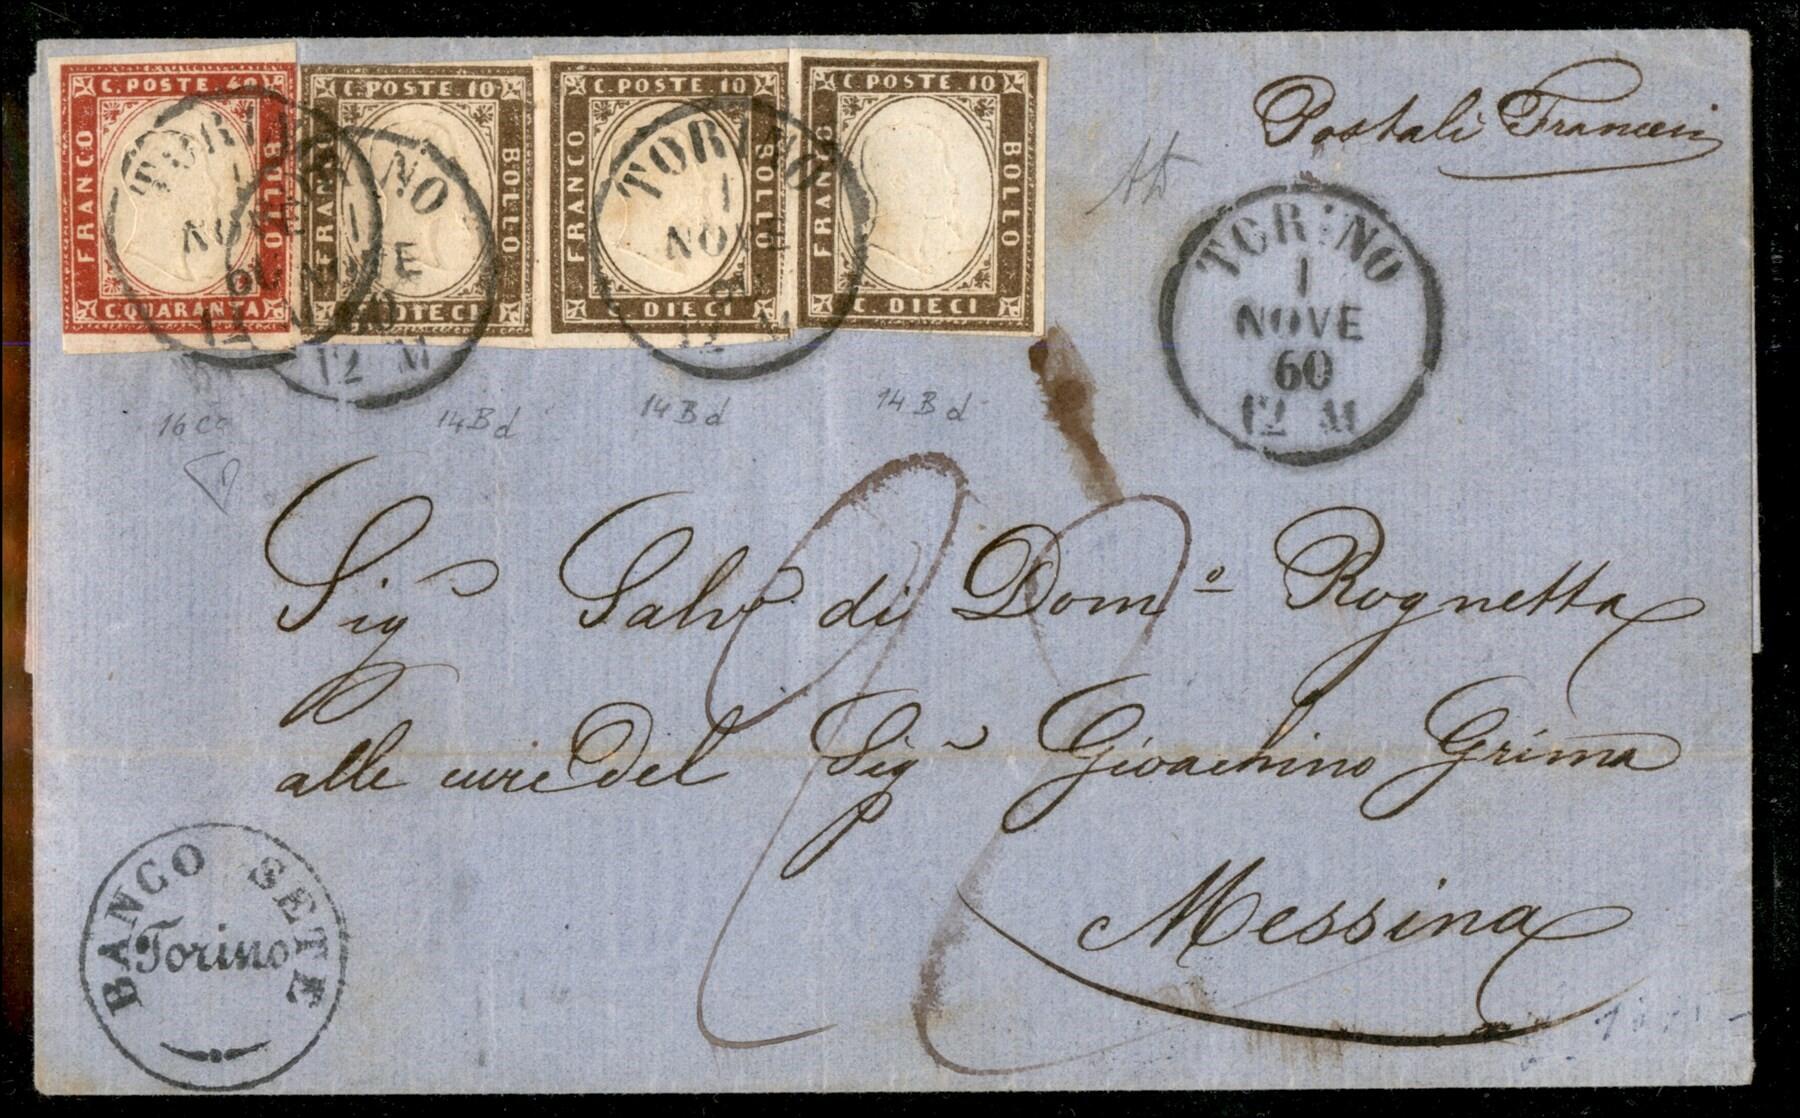 C. POSTE 40
FRANCO
BOLLO
C. QUARANTA
C. POSTE 10
BOLLO
C. POSTE 10
FRANCO
BOLLO
C. DIECI
C. POSTE 10
FRANCO
BOLLO
C. DIECI
TORINO
1
NOVE
12 M
TORINO
1
NOVE
60
12 M
TORINO
1
NOVE
12 M
Postali Francesi
TORINO
1
NOVE
60
12 M
14 B d
14 B d
14 B d
Sig.r Salv.e di Dom.o Rognetta
alle cure del Sig.r Gioachino Grima
Messina
BANCO SETE
Torino